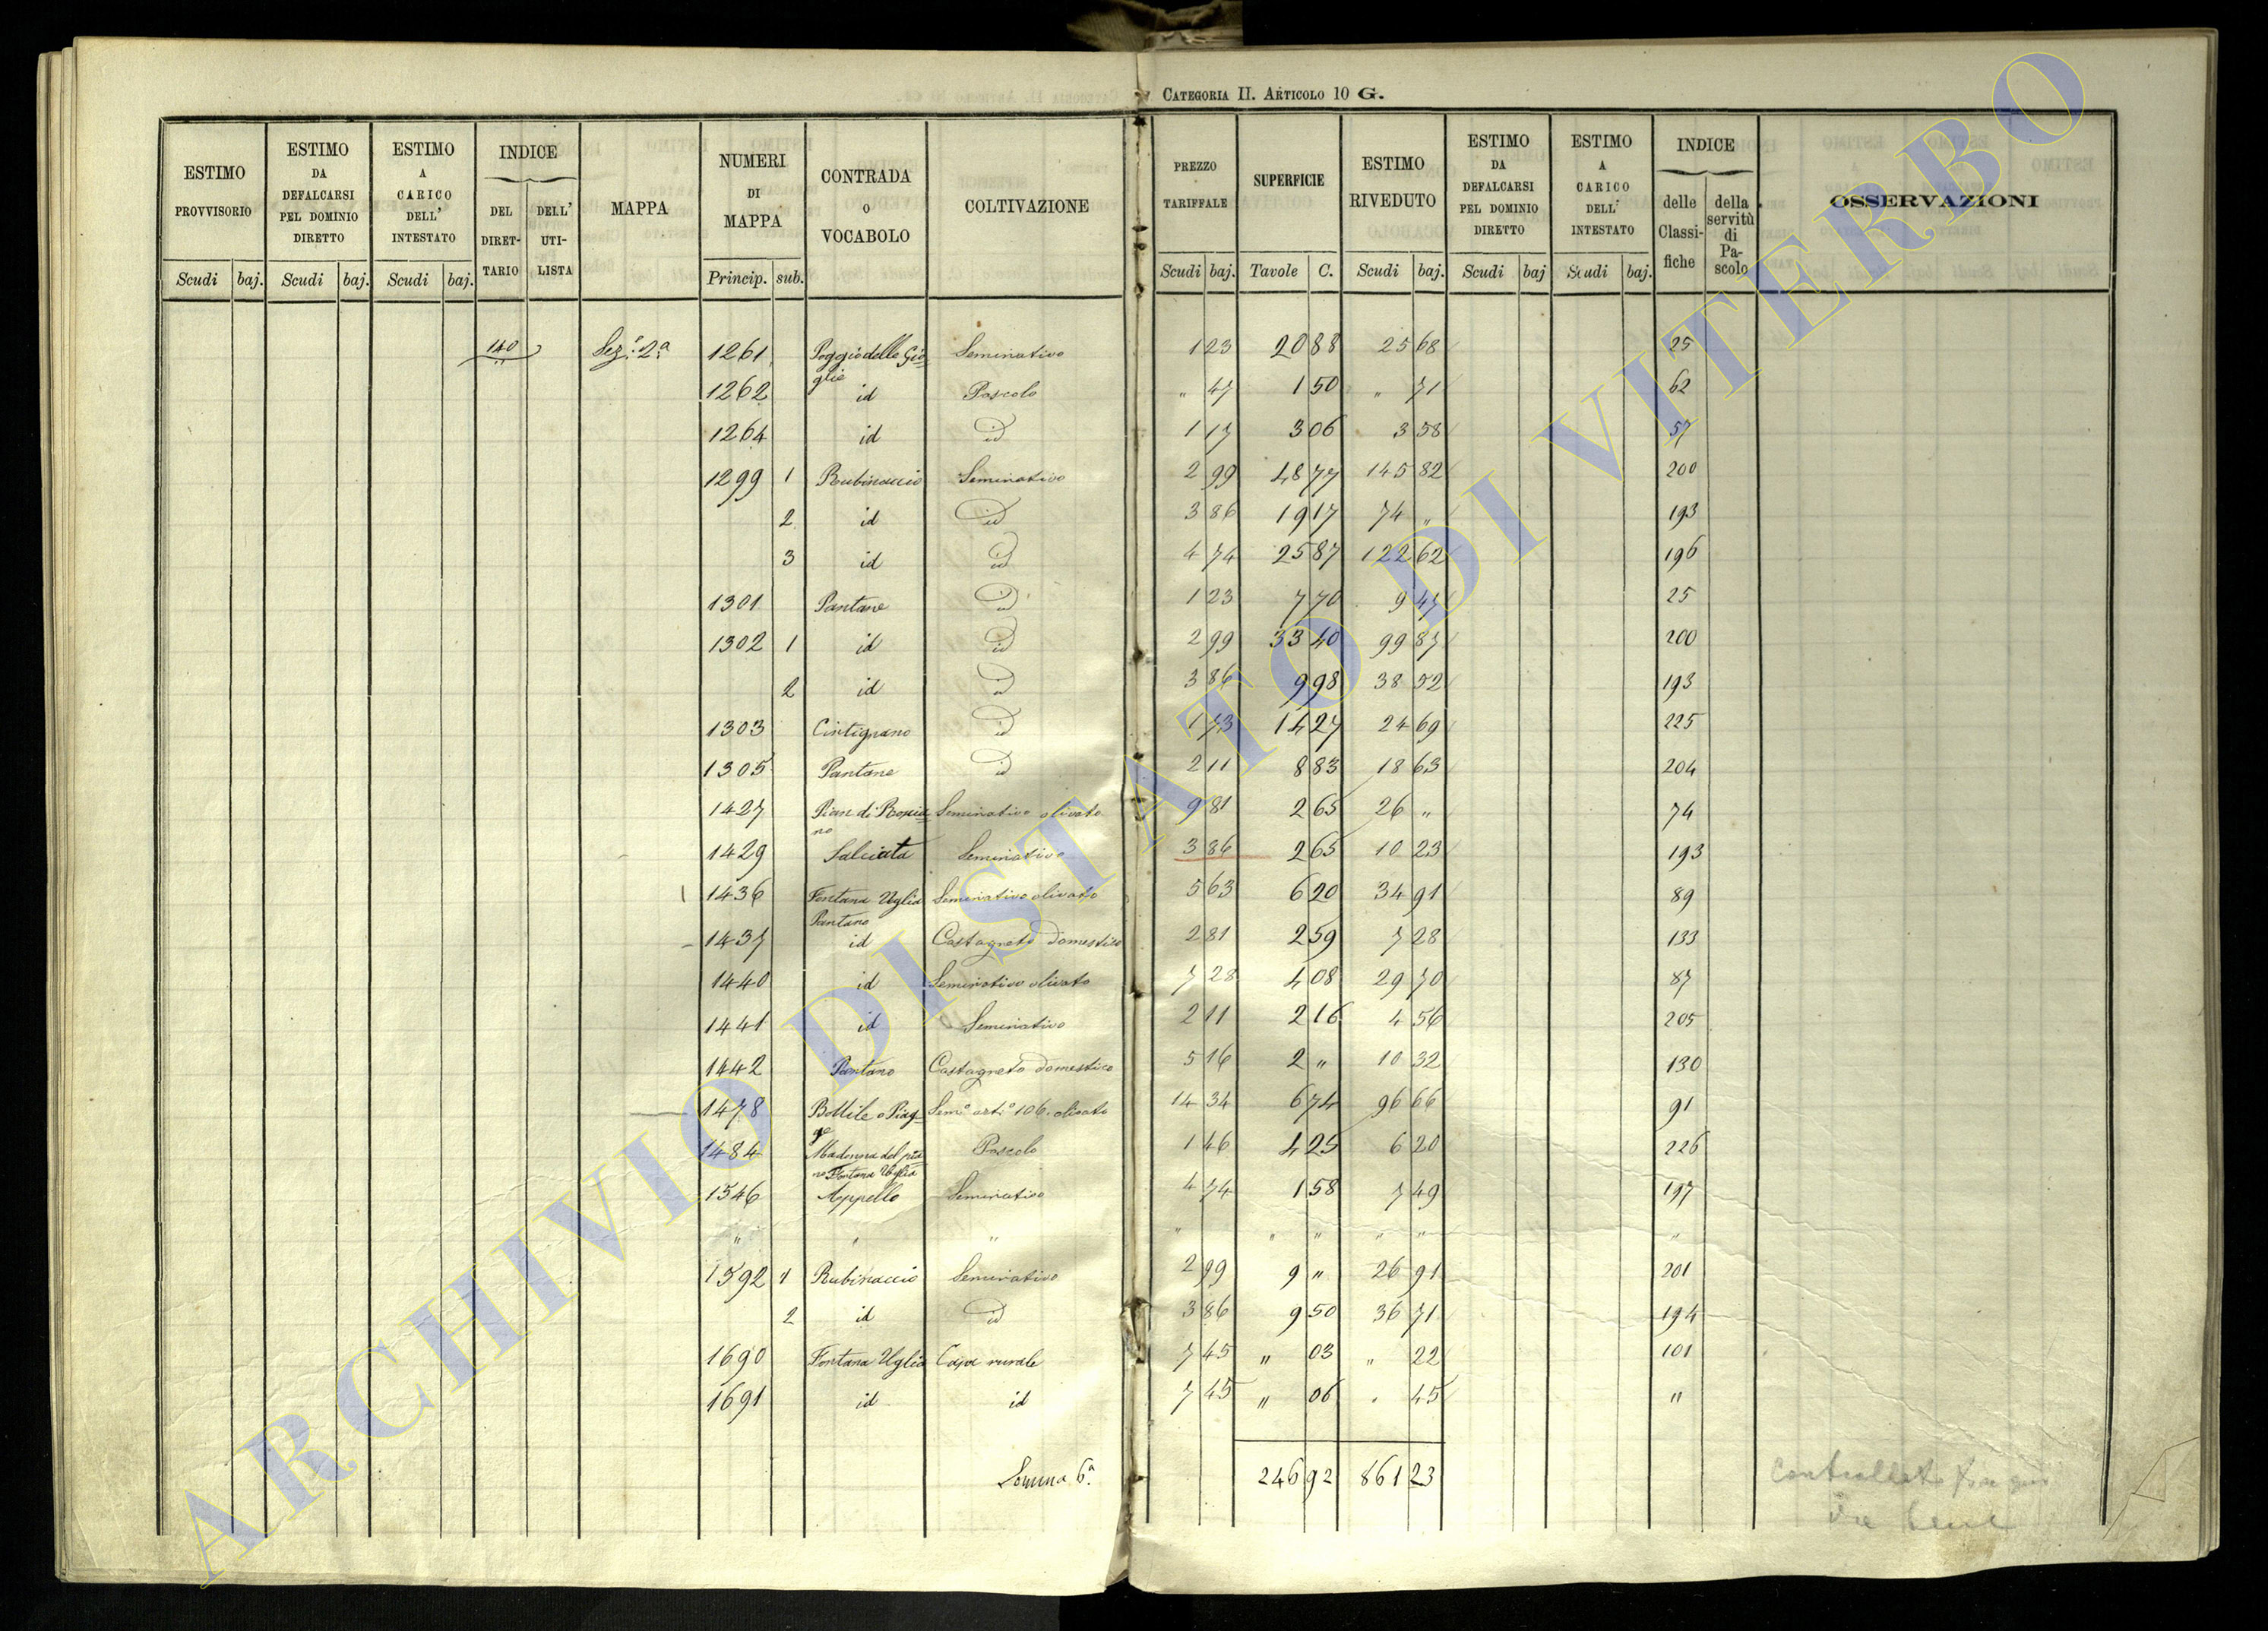 CATEGORIA II. ARTICOLO 10 G.
ESTIMO PROVVISORIO | ESTIMO DA DEFALCARSI PEL DOMINIO DIRETTO | ESTIMO A CARICO DELL' INTESTATO | INDICE DEL DIRETTARIO | DELL' UTILISTA | MAPPA | NUMERI DI MAPPA | CONTRADA O VOCABOLO | COLTIVAZIONE | PREZZO TARIFFALE | SUPERFICIE | ESTIMO RIVEDUTO | ESTIMO DA DEFALCARSI PEL DOMINIO DIRETTO | ESTIMO A CARICO DELL' INTESTATO | INDICE delle Classifiche | della servitù di Pascolo | OSSERVAZIONI
Scudi baj. | Scudi baj. | Scudi baj. | Princip. sub. | Scudi baj. | Tavole C. | Scudi baj. | Scudi baj | Scudi baj.
140 Sez.e 2.a 1261 Poggio delle Gioglie Seminativo 1 23 20 88 25 68 25
1262 id Pascolo " 47 1 50 " 71 62
1264 id id 1 17 3 06 3 58 57
1299 1 Rubinaccio Seminativo 2 99 48 77 145 82 200
2 id id 3 86 19 17 74 " 193
3 id id 4 74 25 87 122 62 196
1301 Pantane id 1 23 7 70 9 47 25
1302 1 id id 2 99 33 40 99 87 200
2 id id 3 86 9 98 38 52 193
1303 Cintignano id 1 73 14 27 24 69 225
1305 Pantane id 2 11 8 83 18 63 204
1427 Pian di no Seminativo olivato 9 81 2 65 26 " 74
1429 Salciata Seminativo 3 86 2 65 10 23 193
1436 Fontana Uglia Pantano Seminativo olivato 5 63 6 20 34 91 89
1437 id Castagneto domestico 2 81 2 59 7 28 133
1440 id Seminativo olivato 7 28 4 08 29 70 87
1441 id Seminativo 2 11 2 16 4 56 205
1442 Pantano Castagneto domestico 5 16 2 " 10 32 130
1478 Bottile o Piagge Sem.o art.o 106. olivato 14 34 6 74 96 66 91
1484 Madonna del piano Fontana Uglia Pascolo 1 46 4 25 6 20 226
1546 Appello Seminativo 4 74 1 58 7 49 197
" " " " " " " " "
1592 1 Rubinaccio Seminativo 2 99 9 " 26 91 201
2 id id 3 86 9 50 36 71 194
1690 Fontana Uglia Casa rurale 7 45 " 03 " 22 101
1691 id id 7 45 " 06 " 45 "
Somma 6.a 246 92 861 23
ARCHIVIO DI STATO DI VITERBO